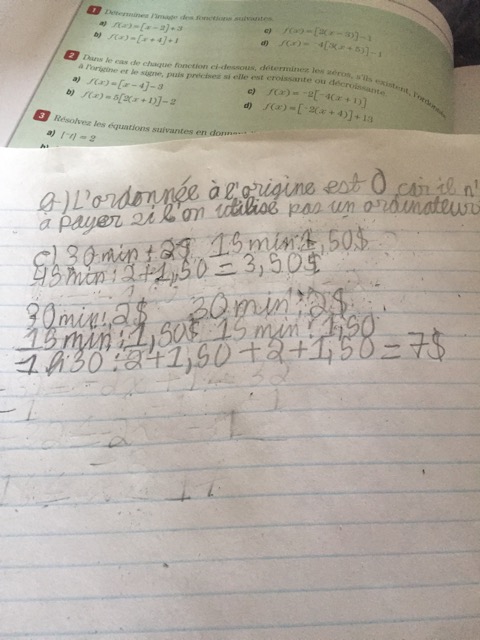 1 Déterminez l'image des fonctions suivantes.
a) f(x)=[x−2]+3
c) f(x)=[2(x−3)]−1
b) f(x)=[x+4]+1
d) f(x)=−4[3(x+5)]−1
2 Dans le cas de chaque fonction ci-dessous, déterminez les zéros, s'ils existent, l'ordonnée
à l'origine et le signe, puis précisez si elle est croissante ou décroissante.
a) f(x)=[x−4]−3
c) f(x)=−2[−4(x+1)]
b) f(x)=5[2(x+1)]−2
d) f(x)=[−2(x+4)]+13
3 Résolvez les équations suivantes en
a) = 2
a) L'ordonnée à l'origine est 0 car il n'
à payer si l'on utilise pas un ordinateur
c) 30 min : 2$ 15 min : 1,50$
45 min : 2+1,50 = 3,50$
30 min : 2$ 30 min : 2$
15 min : 1,50$ 15 min : 1,50
1 h 30 : 2+1,50+2+1,50 = 7$